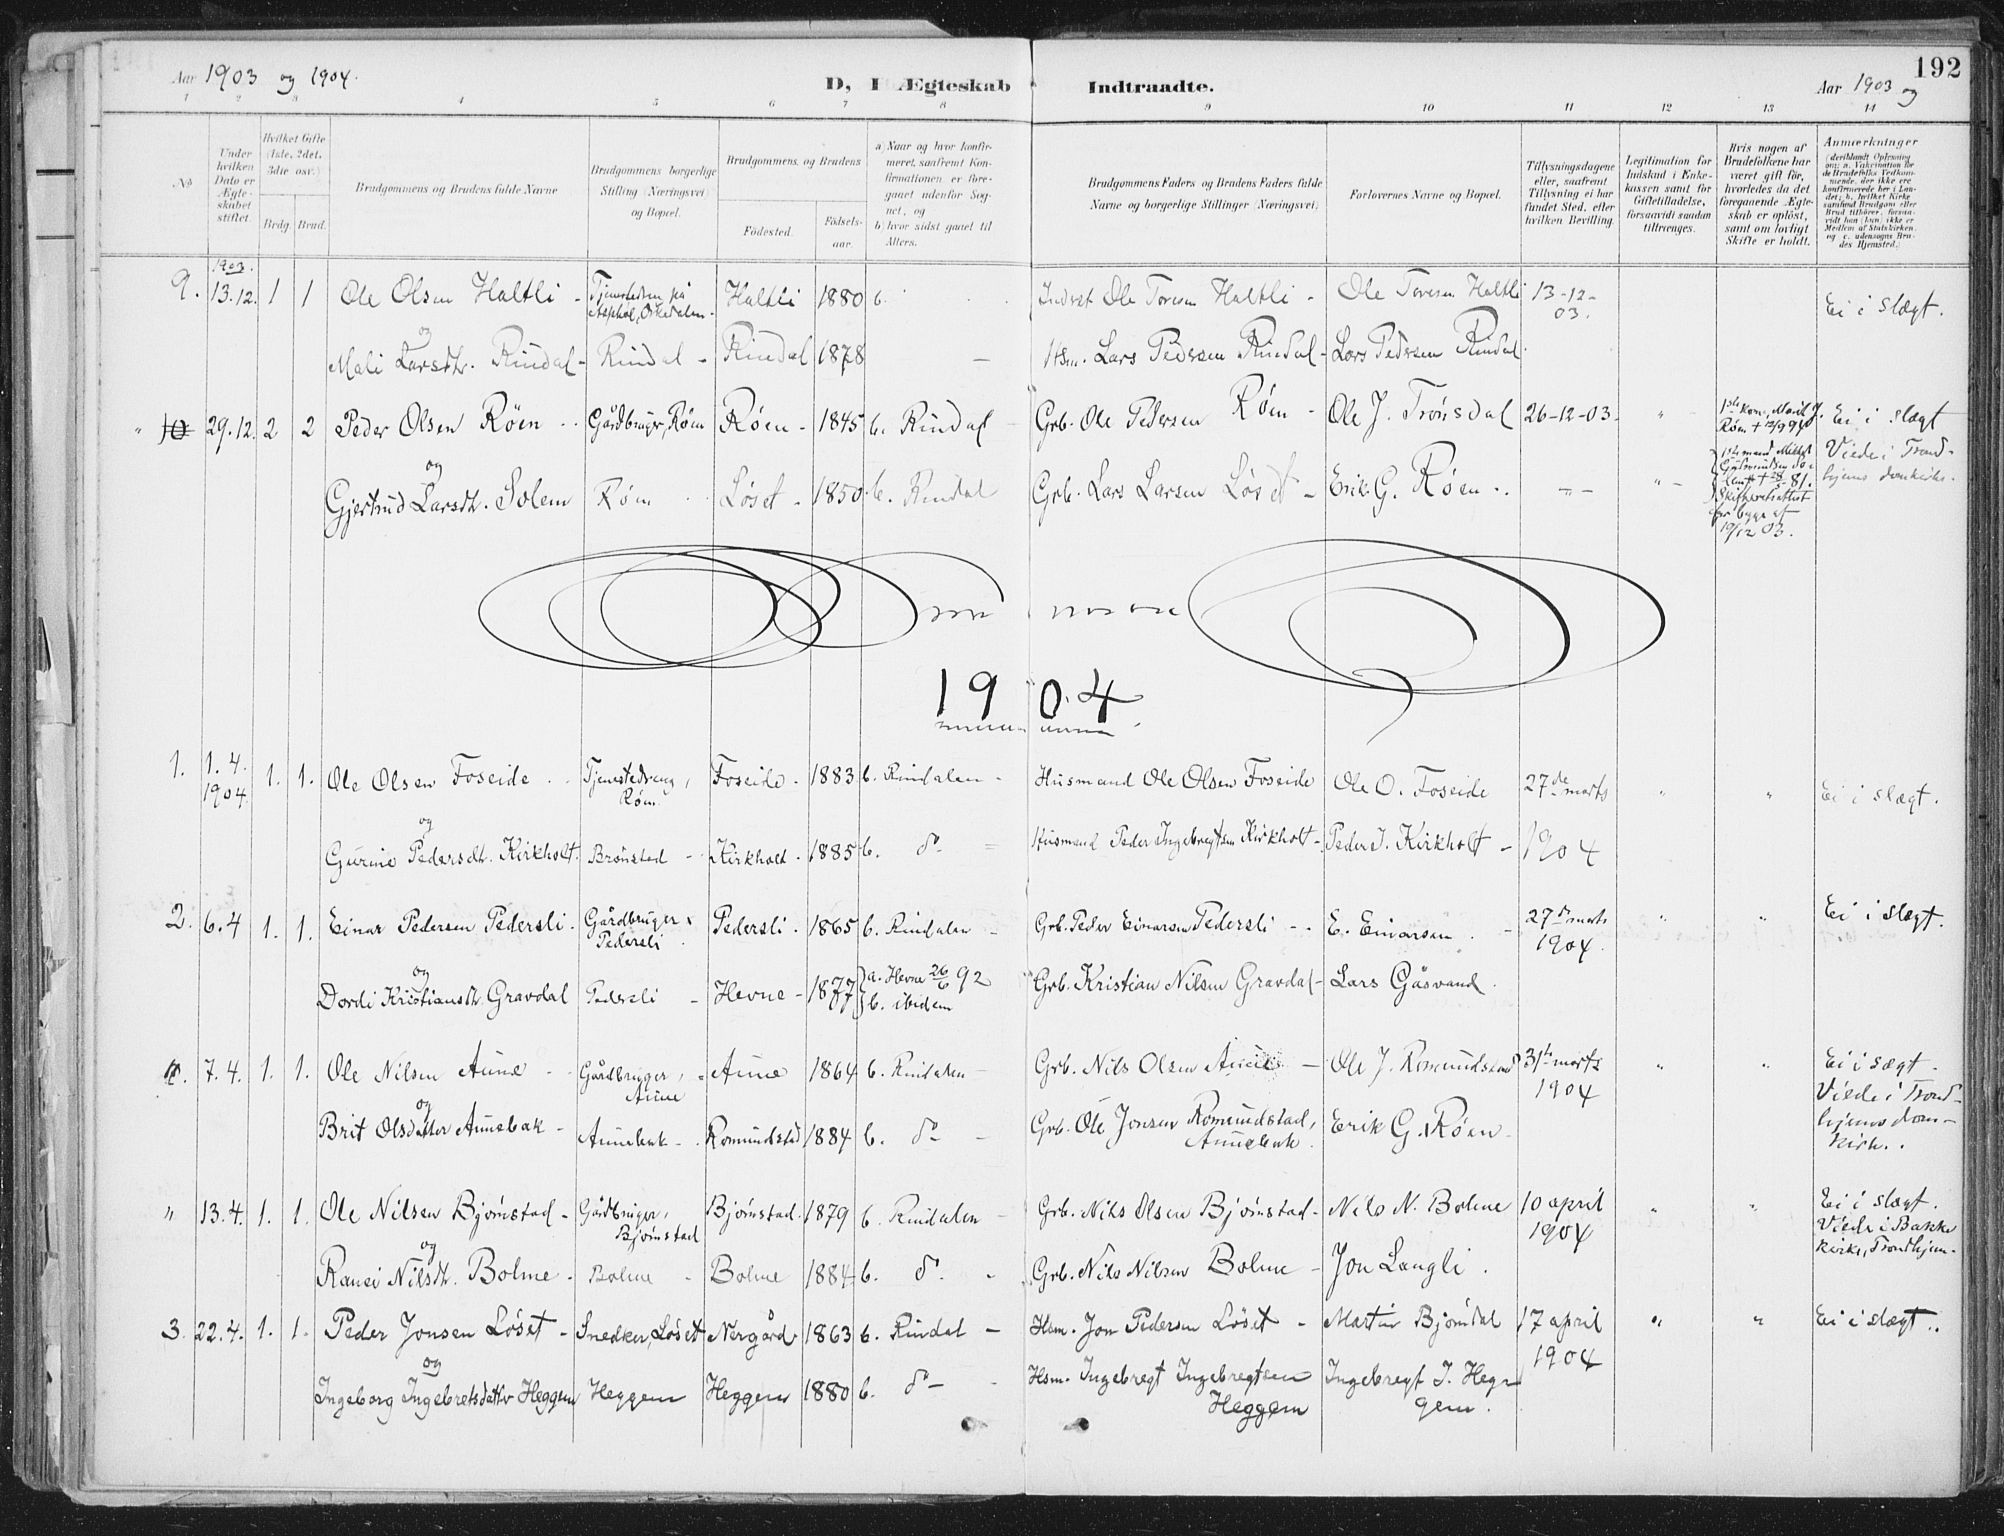 Aar 1903 og 1904.
D, I Ægteskab Indtraadte.
Aar 1903 og
192
1 2 3 4 5 6 7 8 9 10 11 12 13 14
No
Under hvilken Dato er Ægteskabet stiftet.
Hvilket Gifte (1ste, 2det, 3die osv.)
Brdg. Brud.
Brudgommens og Brudens fulde Navne
Brudgommens borgerlige Stilling (Næringsvei) og Bopæl.
Brudgommens og Brudens
Fødested. Fødselsaar.
a) Naar og hvor konfirmeret, saafremt Konfirmationen er foregaaet udenfor Sognet, og
b) hvor sidst gaaet til Alters.
Brudgommens Faders og Brudens Faders fulde Navne og borgerlige Stillinger (Næringsvei)
Forlovernes Navne og Bopæl.
Tillysningsdagene eller, saafremt Tillysning ei har fundet Sted, efter hvilken Bevilling.
Legitimation for Indskud i Enkekassen samt for Giftetilladelse, forsaavidt saadan tiltrænges.
Hvis nogen af Brudefolkene har været gift før, hvorledes da det foregaaende Ægteskab er opløst, samt om lovligt Skifte er holdt.
Anmerkninger
1903.
9. 13.12. 1 1 Ole Olsen Haltli - Tjenestedreng på Asphol, Orkedalen - Haltli 1880 b. Indrst Ole Toresen Haltli - Ole Toresen Haltli 13-12-03. Ei i slægt.
og
Mali Larsdtr. Rindal - Rindal - Rindal 1878 - Hsm. Lars Pedersen Rindal - Lars Pedersen Rindal.
" 10 29.12. 2 2 Peder Olsen Röen - Gårdbruger, Röen Röen - 1845 b. Rindal Grb. Ole Pedersen Röen - Ole J. Trönsdal 26-12-03. " 1ste kone, Marit J. Röen + 12/9 99 Ei i slægt
og
Viede i Trondhjems domkirke.
Gjertrud Larsdtr. Solem Röen Löset - 1850 b. Rindal Grb. Lars Larsen Löset - Erik G. Röen - " 1ste mand, Mikkel Gudmundsen Solem + 28/5 81. Skifteretsattest 19/12 03.
1904
1. 1.4. 1904 1. 1. Ole Olsen Foseide Tjenestedreng, Röen Foseide - 1883 b. Rindalen - Husmand Ole Olsen Foseide Ole O. Foseide 27de marts " " Ei i slægt.
og
Gurine Pedersdtr. Kirkholt. Brönstad - Kirkholt. 1885 b. do - Husmand Peder Ingebregtsen Kirkholt - Peder I. Kirkholt - 1904
2. 6.4 1. 1. Einar Pedersen Pedersli. Gårdbruger, Pedersli Pedersli. 1865 b. Rindalen - Grb. Peder Einarsen Pedersli - E. Einarsen. 27de marts 1904. " " Ei i slægt.
og
Dordi Kristiansdtr. Gravdal Pedersli - Hevne - 1877 a. Hevne 26/6 92 b. ibidem Grb. Kristian Nilsen Gravdal - Lars Gåsvand.
". 7.4. 1. 1. Ole Nilsen Aune Gårdbruger, Aune Aune 1864 b. Rindalen - Grb. Nils Olsen Aune - Ole J. Romundstad 31te marts 1904 " " Ei i sægt. Viede i Trondhjems domkirke.
og
Brit Olsdatter Aunebak - Aunebak - Romundstad 1884 b. do - Grb. Ole Jonsen Romundstad, Aunebak. Erik G. Röen -
" 13.4. 1. 1. Ole Nilsen Bjørnstad - Gårdbruger, Bjørnstad Bjørnstad. 1879 b. Rindalen - Grb. Nils Olsen Bjørnstad - Nils N. Bolme 10 april 1904 " " Ei i slægt. Viede i Bakke kirke, Trondhjem.
og
Ranei Nilsdtr. Bolme. Bolme - Bolme 1884 b. do. - Grb. Nils Nilsen Bolme - Jon Langli.
3. 22.4. 1. 1. Peder Jonsen Löset - Snedker, Löset Nergård. 1863 b. Rindal - Hsm. Jon Pedersen Löset - Martin Bjørndal 17 april 1904 " " Ei i slægt.
og
Ingeborg Ingebretsdatter Heggem Heggem Heggem 1880 b. do - Hsm. Ingebregt Ingebregtsen Heggem Ingebregt I. Heggem.